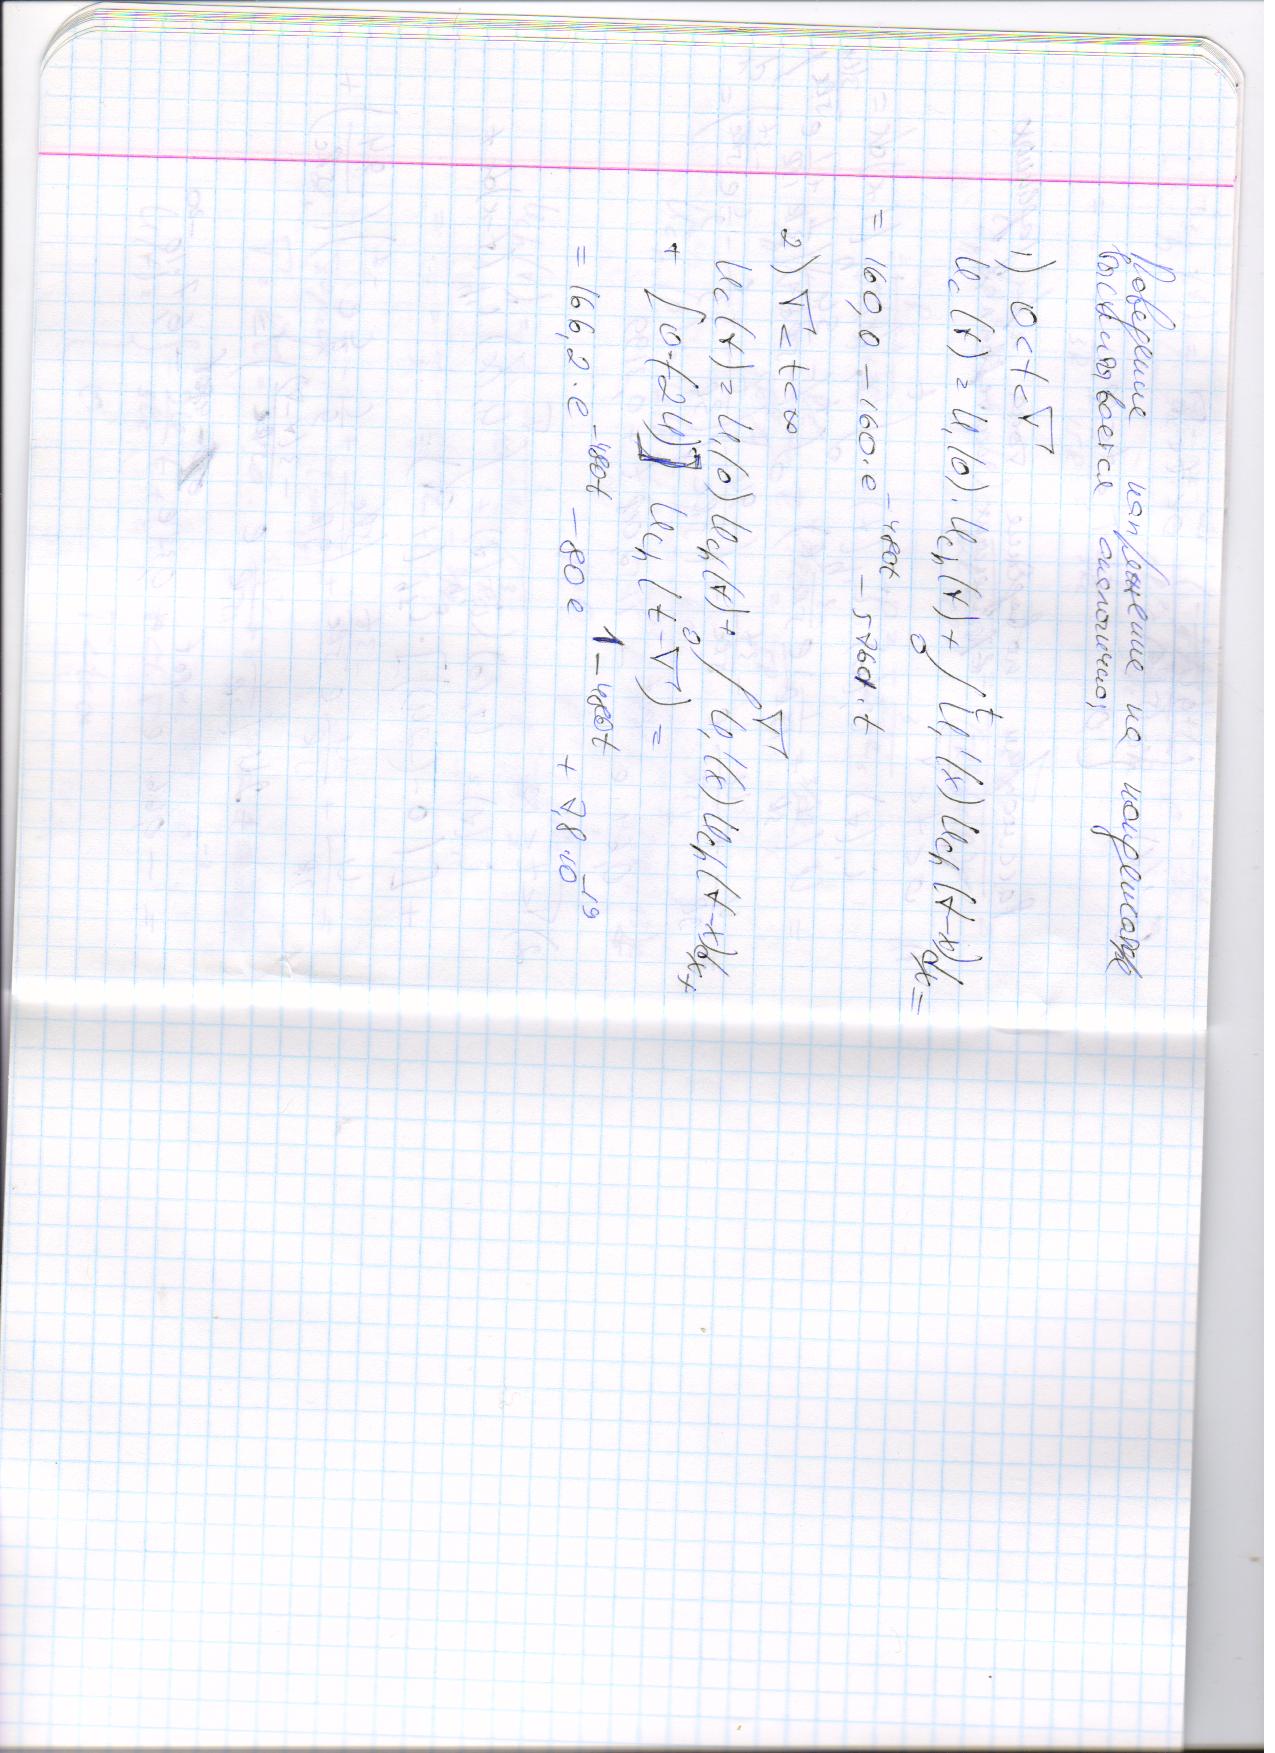 Поведение напряжение на конденсаторе
высчитывается аналогично;
1) 0<t<T
Uc(t) = U₁(0)·Uch(t) + ₀∫ᵗ U₁'(x) Uch(t-x)dx =
= 160,0 - 160·e⁻⁴⁸⁰ᵗ - 5760·t
2) T<t<∞
Uc(t) = U₁(0) Uch(t) + ₀∫ᵀ U₁'(x) Uch(t-x)dx +
+ [0-(2U₁)] Uch(t-T) =
= 166,2·e⁻⁴⁸⁰ᵗ - 80e¹⁻⁴⁸⁰ᵗ + 7,8·10⁻¹⁹